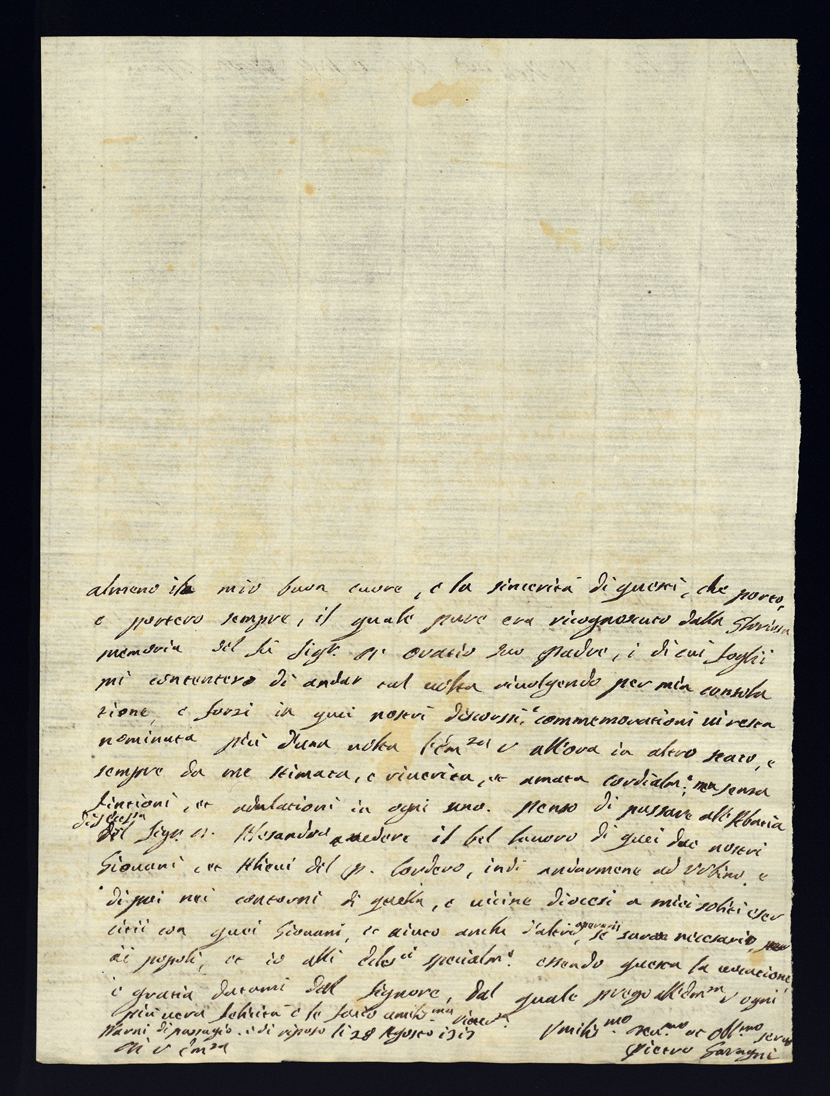 almeno il mio buon cuore, e la sincerità di questi, che porto,
e porterò sempre, il quale pure era ricognosciuto dalla gloriosa
memoria del fù Sigr. Pr. Oratio suo Padre, i di cui foglii
mi contenterò di andar tal volta rivolgendo per mia consola
tione, e forsi in quei nostri discorsi, e commemorationi vi resta
nominata più d'una volta l'Em.za V. all'ora in altro stato, e
sempre da me stimata, e riverita, et amata cordialm.e, ma senza
fintioni, et adulationi in ogni uno. Penso di passare all'Abbatia
del Sigr. Alesandro a vedere il bel lavoro di quei due nostri
Giovani, et Allievi del P. Cordero, indi andarmene ad Urbino, e
di poi nei contorni di quella, e vicine diocesi a miei soliti eser
citii con quei Giovani, et aiuto anche d'altri operarii, se sarà necesario,
ai popoli, et io alli specialm.e essendo questa la vocatione,
e gratia datami dal Signore, dal quale prego all'Em.za V. ogni
più vera felicità e le faccio
Narni di passagio e di riposo li 28 Agosto 1717
Di V. Em.za
Umilis.mo Dev.mo et Obl.mo servo
Pietro